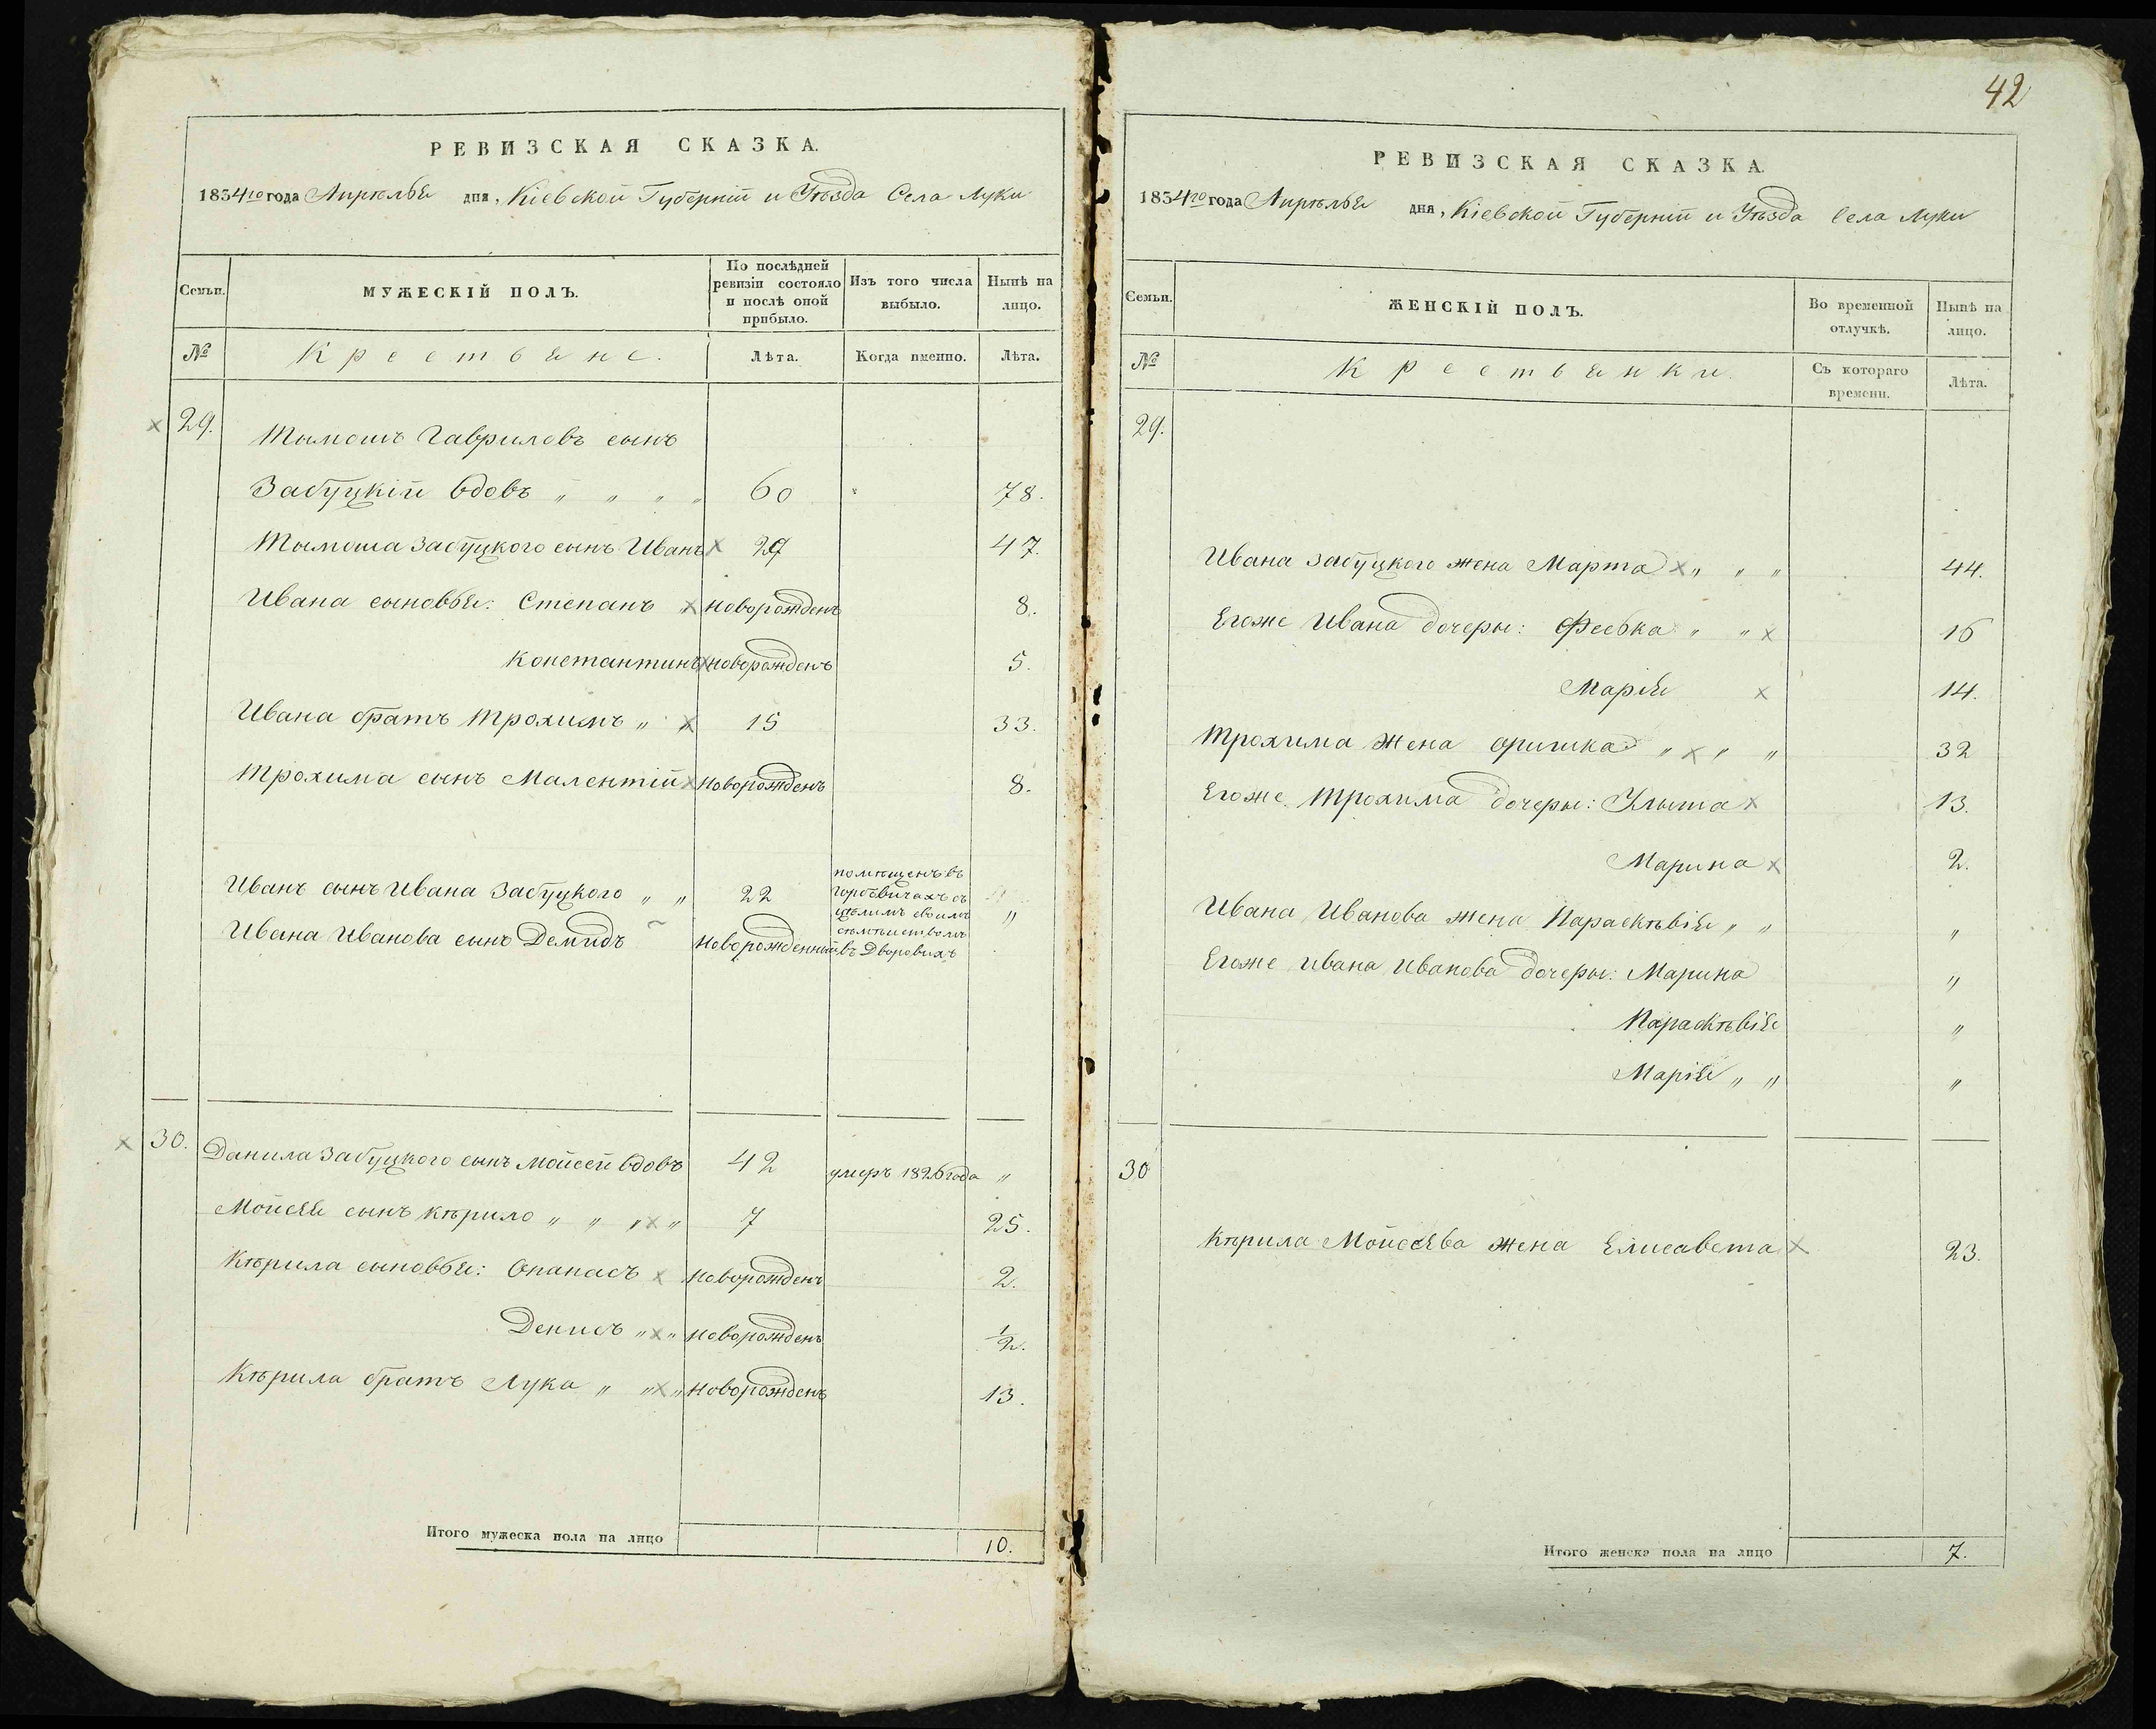 РЕВИЗСКАЯ СКАЗКА.
1834го года Апрѣля дня, Кіевской Губерніи и Уѣзда Села Луки
Семьи.
МУЖЕСКІЙ ПОЛЪ.
По послѣдней
ревизіи состояло
и послѣ оной
прибыло.
Изъ того числа
выбыло.
Нынѣ на
лицо.
№
Крестьяне.
Лѣта.
Когда именно.
Лѣта.
29.
Тымошъ Гавриловъ сынъ
Забуцкій вдовъ " " " " 60 78.
Тымоша Забуцкого сынъ Иванъ 29 47.
Ивана сыновья: Степанъ новорожденъ 8.
Константинъ новорожденъ 5.
Ивана братъ Трохимъ " 15 33.
Трохима сынъ Малентій новорожденъ 8.
помѣщенъ въ
Иванъ сынъ Ивана Забуцкого " " 22 Горбвичахъ съ
цѣлимъ своимъ "
семѣйствомъ
Ивана Иванова сынъ Демидъ новорожденный въ Дворовихъ
30.
Данила Забуцкого сынъ Мойсей вдовъ 42 умеръ 1826 года "
Мойсѣя сынъ Кѣрило " " " " 7 25.
Кѣрила сыновья: Опанасъ новорожденъ 2.
Денисъ " " новорожденъ 1/2.
Кѣрила братъ Лука " " " новорожденъ 13.
Итого мужеска пола на лицо 10.
42
РЕВИЗСКАЯ СКАЗКА.
1834го года Апрѣля дня, Кіевской Губерніи и Уѣзда Села Луки
Семьи.
ЖЕНСКІЙ ПОЛЪ.
Во временной
отлучкѣ.
Нынѣ на
лицо.
№
Крестьянки.
Съ котораго
времени.
Лѣта.
29.
Ивана Забуцкого жена Марта " " " 44.
Егоже Ивана дочеры: Феська " " 16
Марія 14.
Трохима жена Оришка " " " 32
Егоже Трохима дочеры: Улыта 13.
Марина 2.
Ивана Иванова жена Параскѣвія " " "
Егоже Ивана Иванова дочеры: Марина "
Параскѣвія "
Марія " " "
30
Кѣрила Мойсеева жена Елисавета 23.
Итого женска пола на лицо 7.